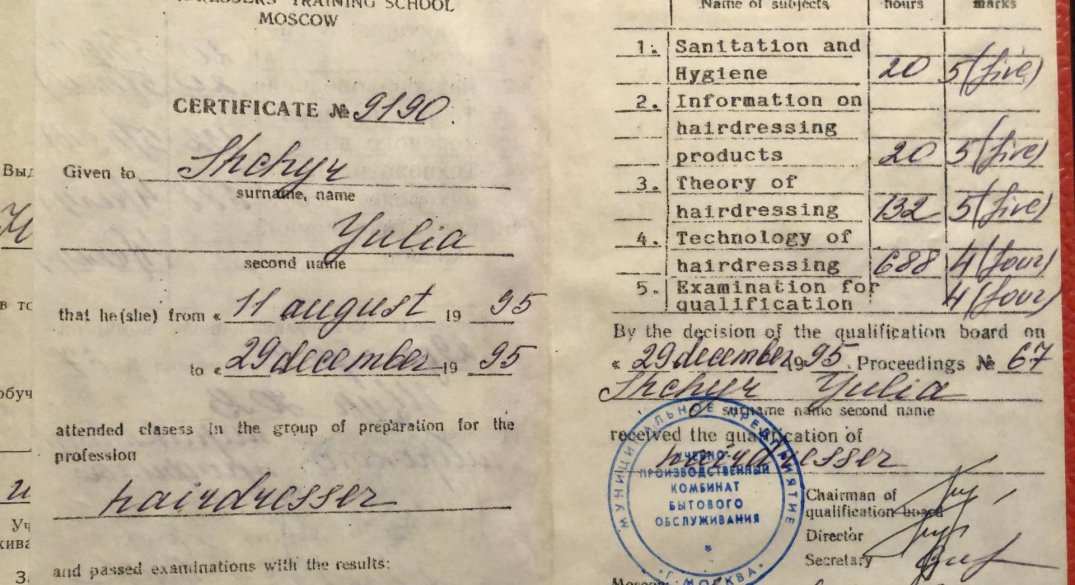 TRAINING SCHOOL
MOSCOW
CERTIFICATE № 9190
Given to Shchyr
surname, name
Yulia
second name
that he(she) from « 11 august 19 95
to « 29 december 19 95
attended clasess in the group of preparation for the
profession
hairdresser
and passed examinations with the results:
Name of subjects hours marks
1. Sanitation and
Hygiene 20 5 (five)
2. Information on
hairdressing
products 20 5 (five)
3. Theory of
hairdressing 132 5 (five)
4. Technology of
hairdressing 688 4 (four)
5. Examination for
qualification 4 (four)
By the decision of the qualification board on
« 29 december 1995. Proceedings № 67
Shchyr Yulia
surname name second name
received the qualification of
hairdresser
Chairman of
qualification board
Director
Secretary
Moscow
МУНИЦИПАЛЬНОЕ ПРЕДПРИЯТИЕ
УЧЕБНО-
ПРОИЗВОДСТВЕННЫЙ
КОМБИНАТ
БЫТОВОГО
ОБСЛУЖИВАНИЯ
Г. МОСКВА